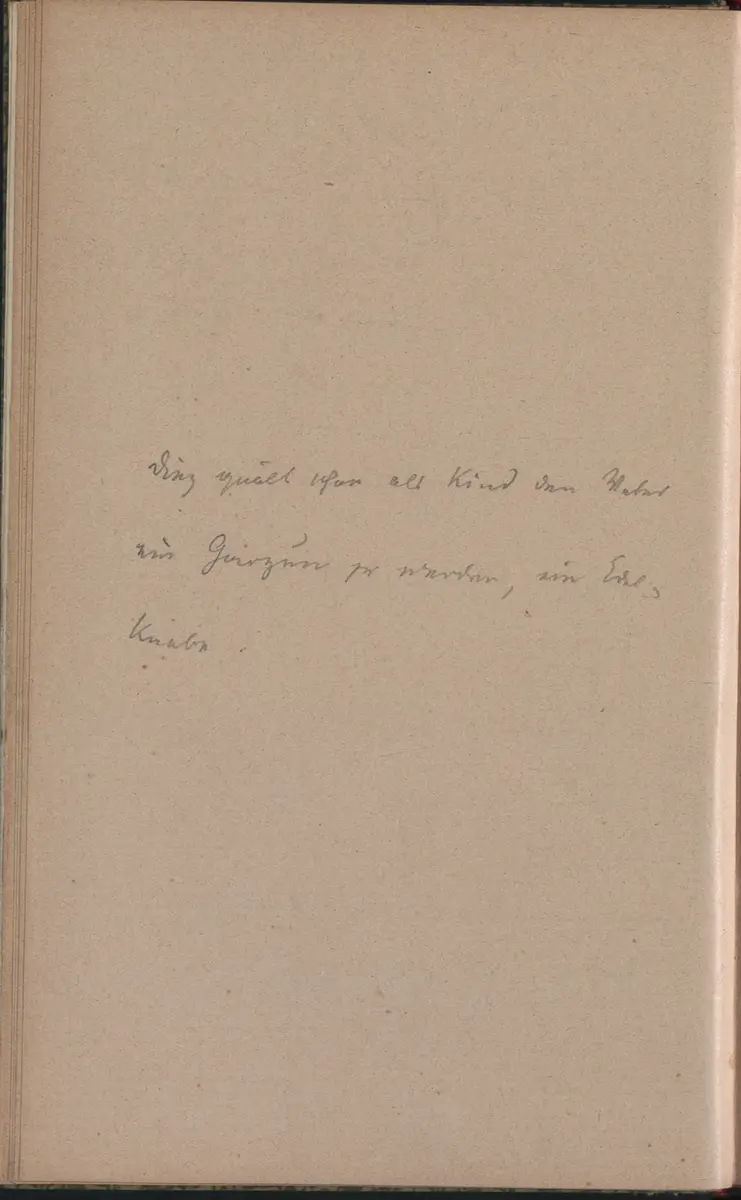 Diez quält schon als Kind den Vater
ein Garzun zu werden, ein Edel-
Knabe.